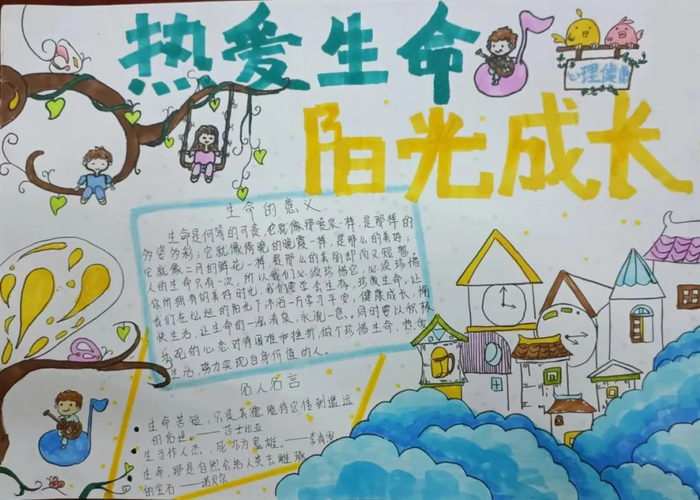 热爱生命
心理健康
阳光成长
生命的意义
生命是何等的可贵,它就像
一样,是那样的
多姿多彩;它就像傍晚的晚霞一样,是那么的美好;
它就像二月的鲜花一样,是那么的美丽却而又短暂。
人的生命只有一次,所以我们必须珍惜它,必须珍惜
你所拥有的美好时光,我们要学会生存,珍爱生命,让
我们在灿烂的阳光下沐浴
健康成长,愉
快生活,让生命的一泓清泉,永流一息,同时要以积极
乐观的心态对待困难和挫折,做个珍惜生命,热爱
生活,努力实现自身价值的人。
名人名言
生命苦短,只是美德能将它传到遥远
的后世。——莎士比亚
生当作人杰,死亦为鬼雄。——李清照
生命,那是自然会给人类去雕琢
的宝石——诺贝尔